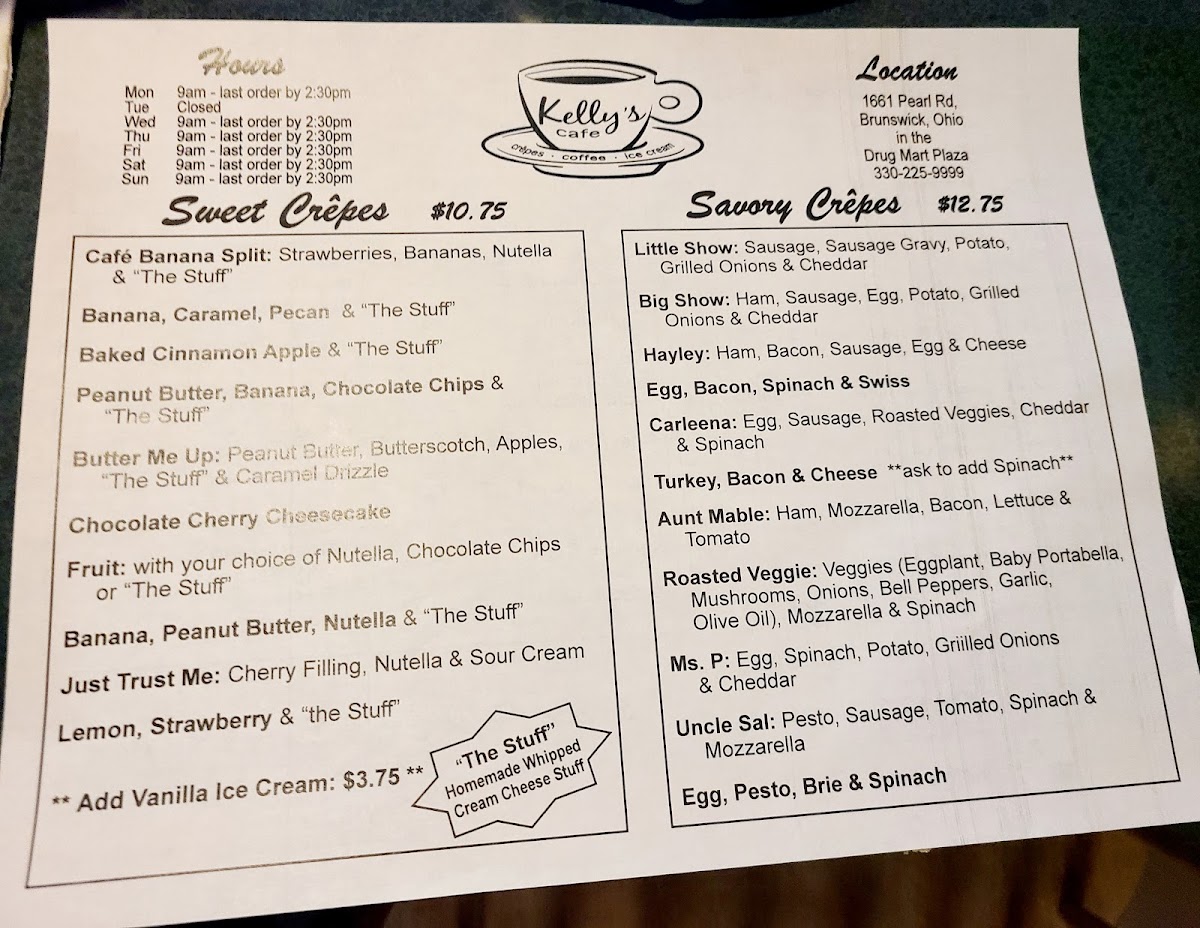 Hours
Mon 9am - last order by 2:30pm
Tue Closed
Wed 9am - last order by 2:30pm
Thu 9am - last order by 2:30pm
Fri 9am - last order by 2:30pm
Sat 9am - last order by 2:30pm
Sun 9am - last order by 2:30pm
Kelly's
Cafe
crêpes · coffee · ice cream
Location
1661 Pearl Rd,
Brunswick, Ohio
in the
Drug Mart Plaza
330-225-9999
Sweet Crêpes $10.75
Café Banana Split: Strawberries, Bananas, Nutella
& “The Stuff”
Banana, Caramel, Pecan & “The Stuff”
Baked Cinnamon Apple & “The Stuff”
Peanut Butter, Banana, Chocolate Chips &
“The Stuff”
Butter Me Up: Peanut Butter, Butterscotch, Apples,
“The Stuff” & Caramel Drizzle
Chocolate Cherry Cheesecake
Fruit: with your choice of Nutella, Chocolate Chips
or “The Stuff”
Banana, Peanut Butter, Nutella & “The Stuff”
Just Trust Me: Cherry Filling, Nutella & Sour Cream
Lemon, Strawberry & “the Stuff”
** Add Vanilla Ice Cream: $3.75 **
“The Stuff”
Homemade Whipped
Cream Cheese Stuff
Savory Crêpes $12.75
Little Show: Sausage, Sausage Gravy, Potato,
Grilled Onions & Cheddar
Big Show: Ham, Sausage, Egg, Potato, Grilled
Onions & Cheddar
Hayley: Ham, Bacon, Sausage, Egg & Cheese
Egg, Bacon, Spinach & Swiss
Carleena: Egg, Sausage, Roasted Veggies, Cheddar
& Spinach
Turkey, Bacon & Cheese **ask to add Spinach**
Aunt Mable: Ham, Mozzarella, Bacon, Lettuce &
Tomato
Roasted Veggie: Veggies (Eggplant, Baby Portabella,
Mushrooms, Onions, Bell Peppers, Garlic,
Olive Oil), Mozzarella & Spinach
Ms. P: Egg, Spinach, Potato, Griilled Onions
& Cheddar
Uncle Sal: Pesto, Sausage, Tomato, Spinach &
Mozzarella
Egg, Pesto, Brie & Spinach